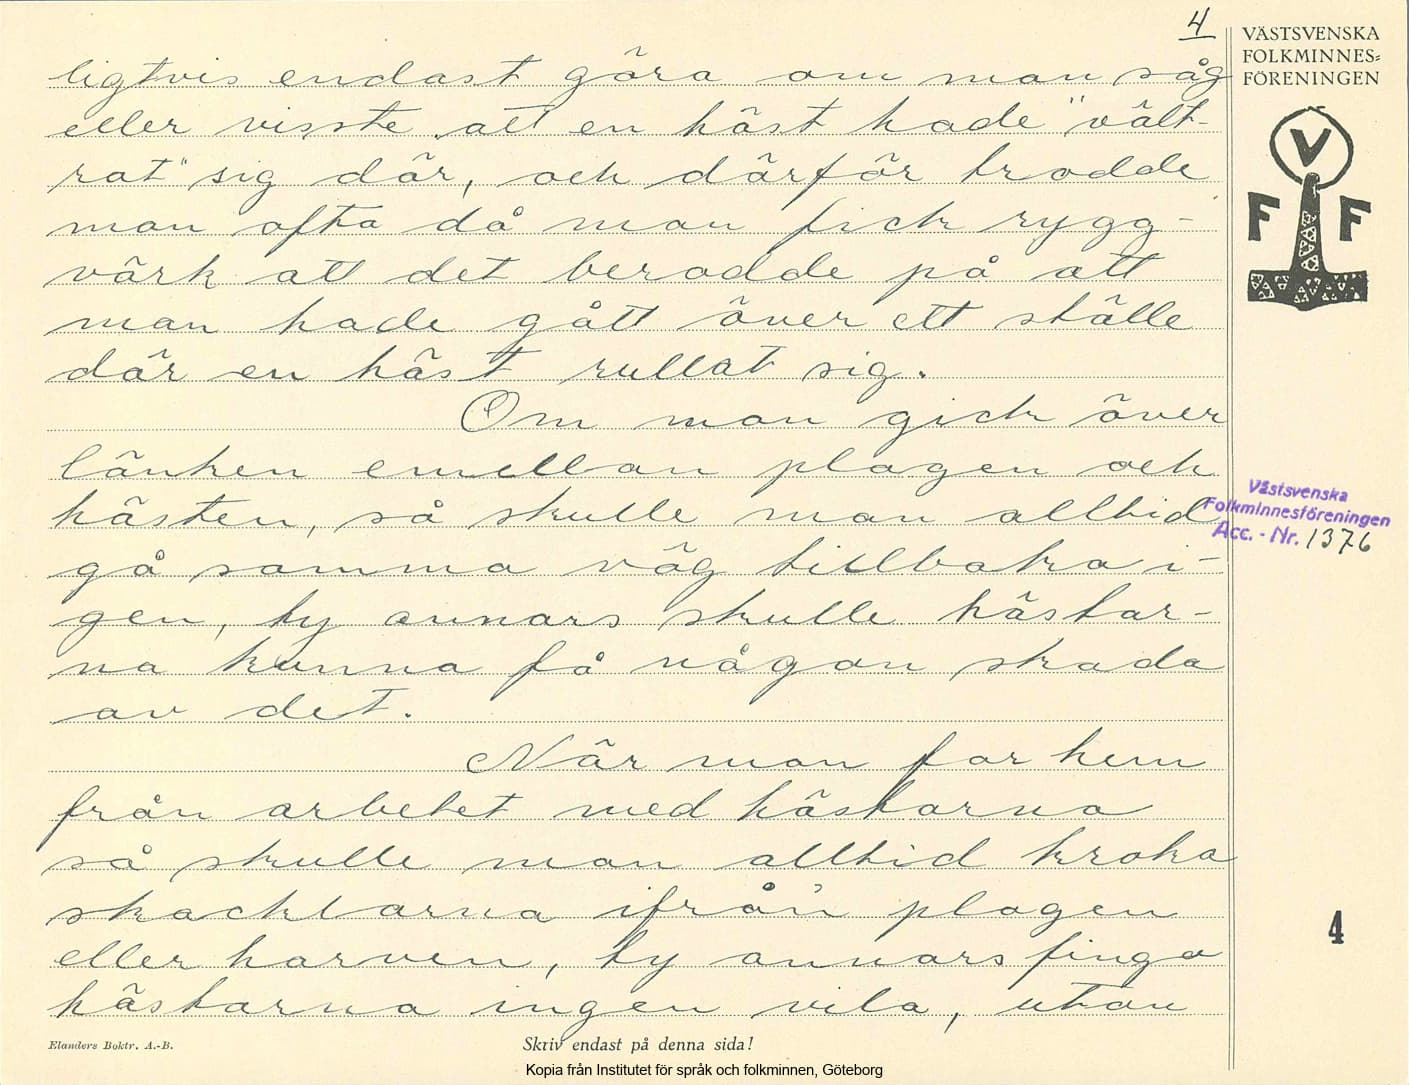 4
VÄSTSVENSKA
FOLKMINNES-
FÖRENINGEN
V
F F
ligtvis endast göra om man såg
eller visste att en häst hade "vält-
rat" sig där, och därför trodde
man ofta då man fick rygg-
värk att det berodde på att
man hade gått över ett ställe
där en häst rullat sig.
Om man gick över
länken emellan plogen och
hästen, så skulle man alltid
gå samma väg tillbaka i-
gen, ty annars skulle hästar-
na kunna få någon skada
av det.
När man for hem
från arbetet med hästarna
så skulle man alltid kroka
skacklarna ifrån plogen
eller harven, ty annars finga
hästarna ingen vila, utan
Västsvenska
Folkminnesföreningen
Acc. - Nr. 1376
4
Elanders Boktr. A.-B.
Skriv endast på denna sida!
Kopia från Institutet för språk och folkminnen, Göteborg